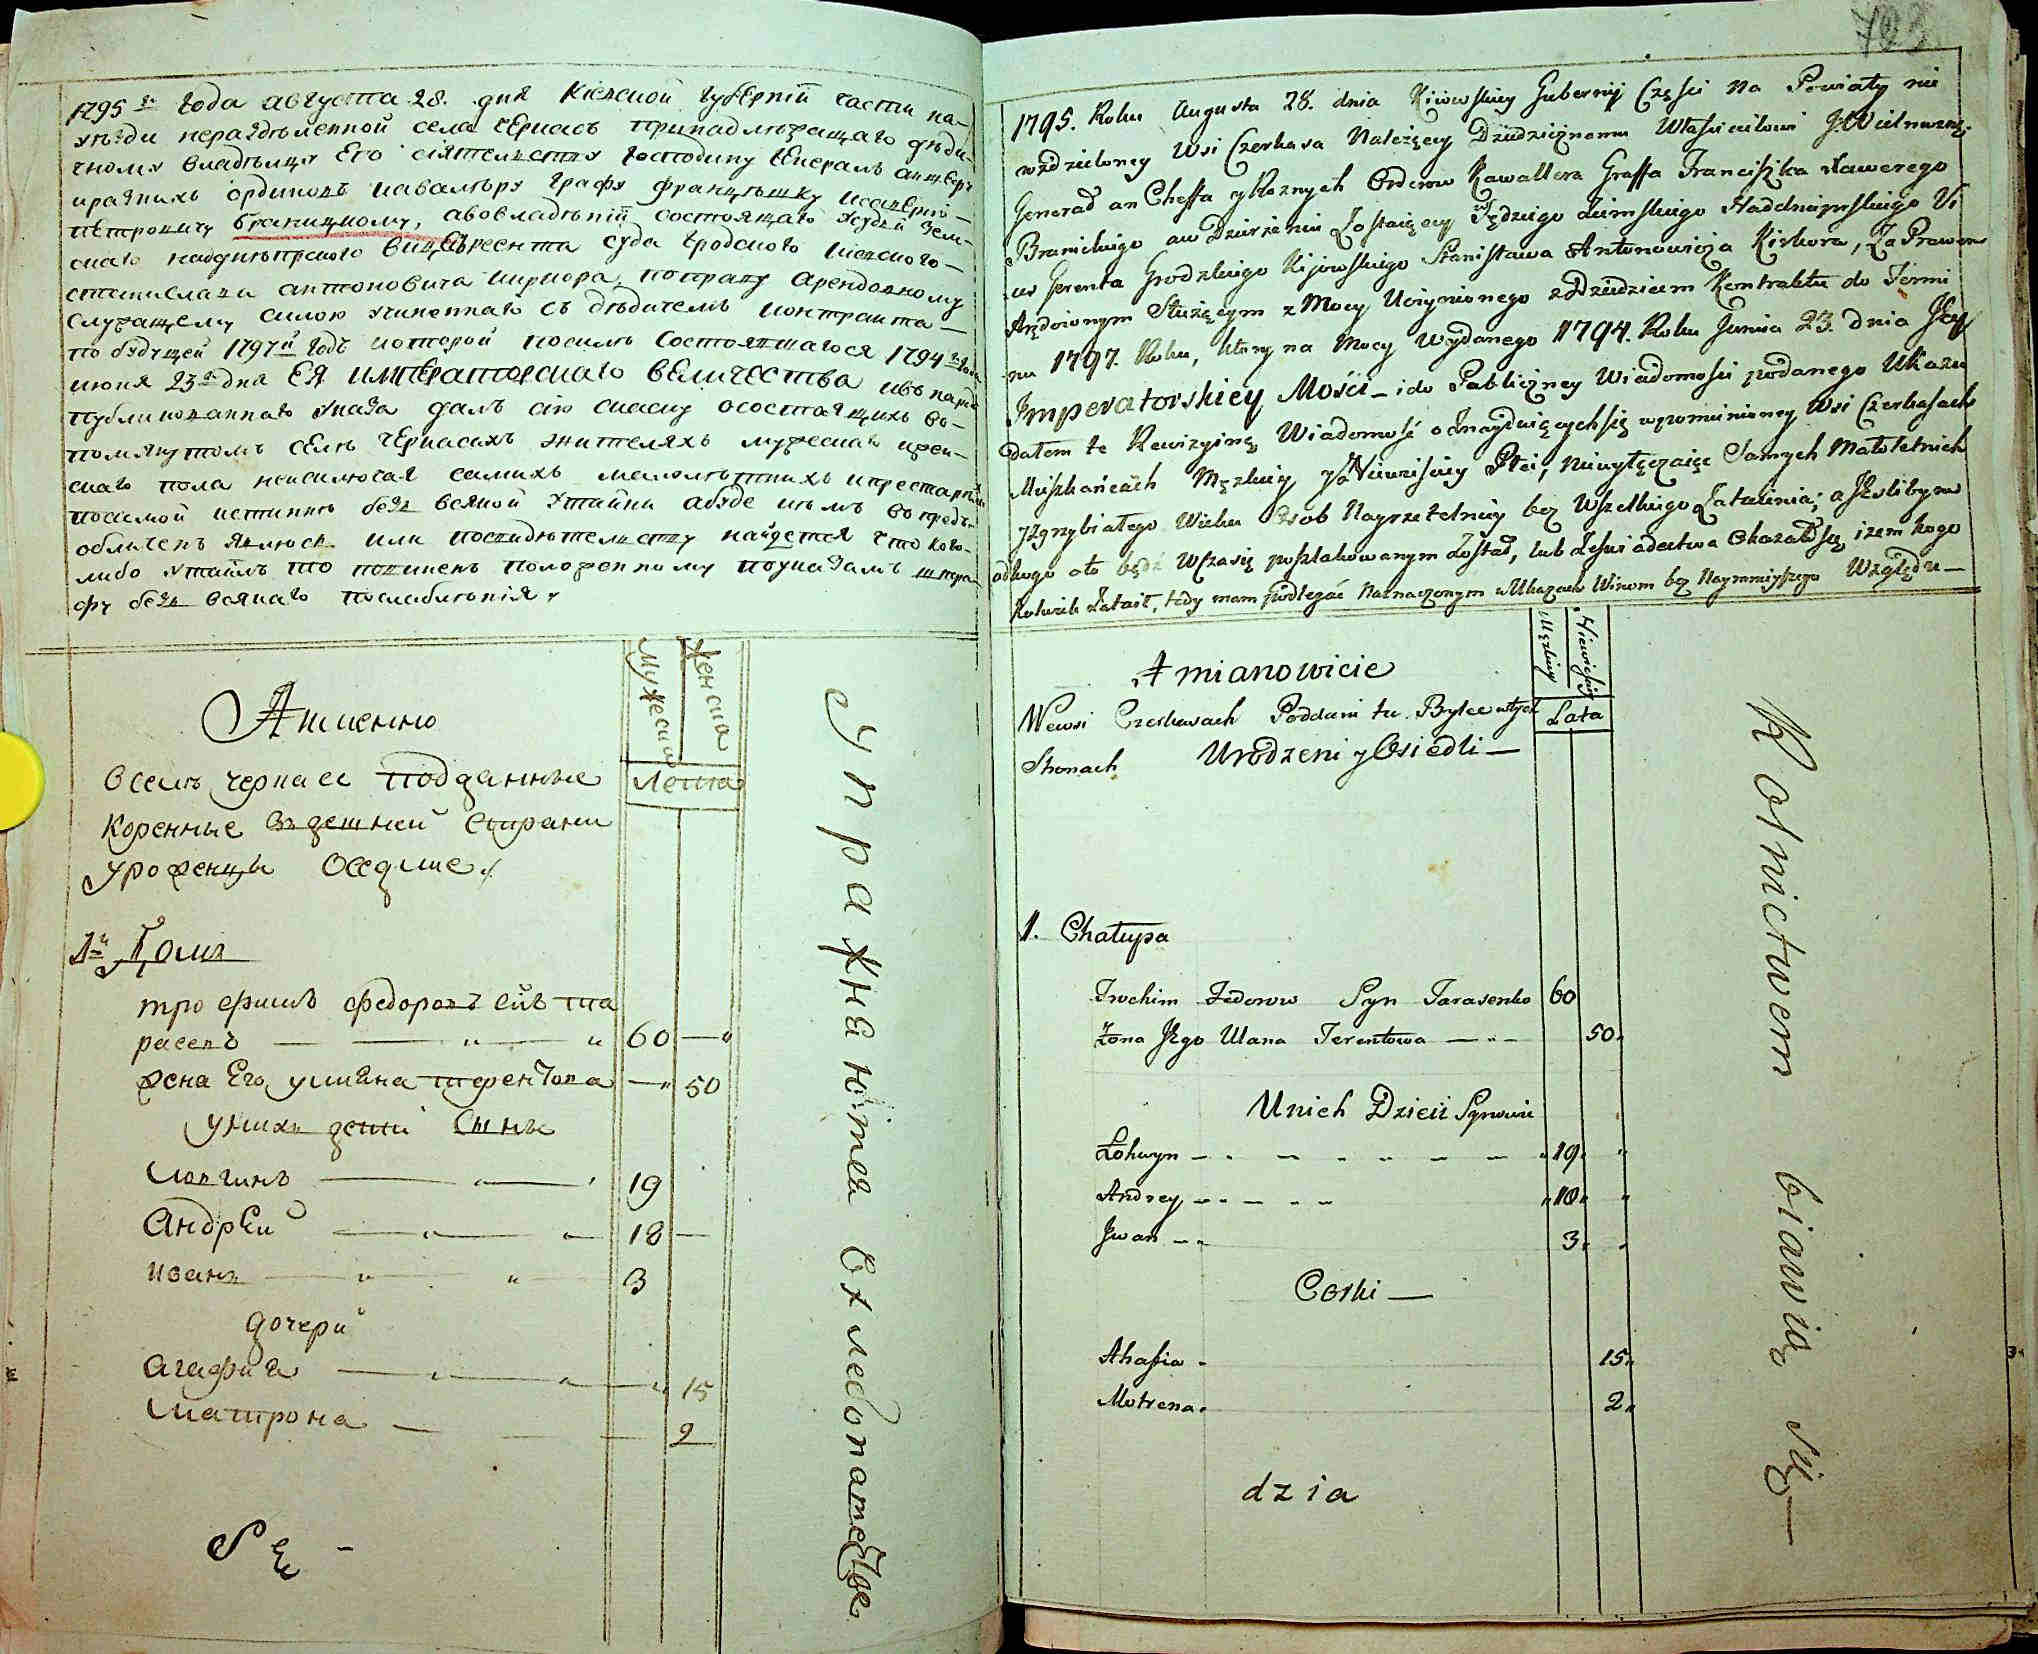 1795 го года августа 28. дня Кіевской губерніи части на
уезди нераздѣленной села Черкасъ принадлежащаго дѣди-
чному владѣлцу Его сіятелству господину генералъ аншефу
и разнихъ ординовъ кавалѣру графу Францѣшку Ксаверію
Петровичу Браницкому, а во владѣніи состоящаго судьи зем-
скаго надднѣпрского вицерегента суда гродского кіевского
Станислава Антоновича Киркора, по праву арендовному
служащему силою учиненнаго съ дѣдичемъ контракта
по будущей 1797 й годъ которой по силѣ состоявшагося 1794 го года
июня 23 го дня ЕЯ ИМПЕРАТОРСКАГО ВЕЛИЧЕСТВА и въ народ
публикованнаго указа далъ сію скаску о состоящихъ во
помянутомъ селѣ Черкасахъ жителяхъ мужеска и жен-
скаго пола неисключая самихъ малолѣтнихъ и престарелихъ
по самой истинне безъ всякой утайки а буде въ чемъ
обличенъ явлюсь или по свидѣтелству найдется что кого
либо утаилъ то повиненъ положенному по указамъ штра
фу безъ всякаго послабленія
Аименно
Мужеска
Женска
Лета
В селѣ Черкасе подданные
Коренные въ здешней страни
уроженцы оседлие
1 й Домъ
трофимъ федоровъ сйъ та
расевъ 60
жена Его уліяна терентова 50
у нихъ дети сины
Логгинъ 19
Андрѣй 18
иванъ 3
дочери
агафия 15
Матрона 2
Упражнаются в хлебопашестве
Се -
723
1795. Roku Augusta 28. dnia Kiiowskiey Gubernij Części na Powiaty nie
rozdzieloney Wsi Czerkasa Należący Dziedzicznemu Właścicielowi J: Wielmożn:
Generał an Cheffa y Roznych Orderow Kawallera Graffa Franciszka Xawerego
Branickiego aw Dzierżeniu Zostaiący Sędziego Ziemskiego Naddnieprskiego Vi
ces Gerenta Grodzkiego Kijowskiego Stanisława Antonowicza Kirkora, Za Prawem
Arędownym Służącym z Mocy Uczynionego z Dziedzicem Kontraktu do Termi
nu 1797. Roku, ktory na Mocy Wydanego 1794. Roku Junia 23. dnia Jey
Imperatorskiey Mości – i do Publiczney Wiadomości podanego Ukazu
dałem te Rewizyiną Wiadomość o Znayduiących się wpomienioney Wsi Czerkasach
Mieszkańcach Męzkiey y Niewieściey Płci, niewyłączaiąc Samych Małoletnich
y Zgrzybiałego Wieku Osob Nayrzetelniey bez Wszelkiego Zataienia; a Jeslibym
od kogo oto bądź W Czasię poszlakowanym Został, lub Zeswiadectwa Okazałoby się, izem kogo
kolwiek Zataił, tedy mam podlegać Naznaczonym w Ukazach Winom bez Naymnieyszego Względu —
Amianowicie
Męzkiey
Niewieściey
Lata
Wewsi Czerkasach Poddani tu. Bytce w tych
Stronach Urodzeni y Osiedli —
1. Chałupa
Trochim Fedorow Syn Tarasenko 60
Zona Jego Ulana Terentowa 50
Unich Dzieci Synowie
Łohwyn 19
Andrey 18
Jwan 3
Corki —
Ahafia 15
Motrena 2
dzia
Rolnictwem biawią Się —